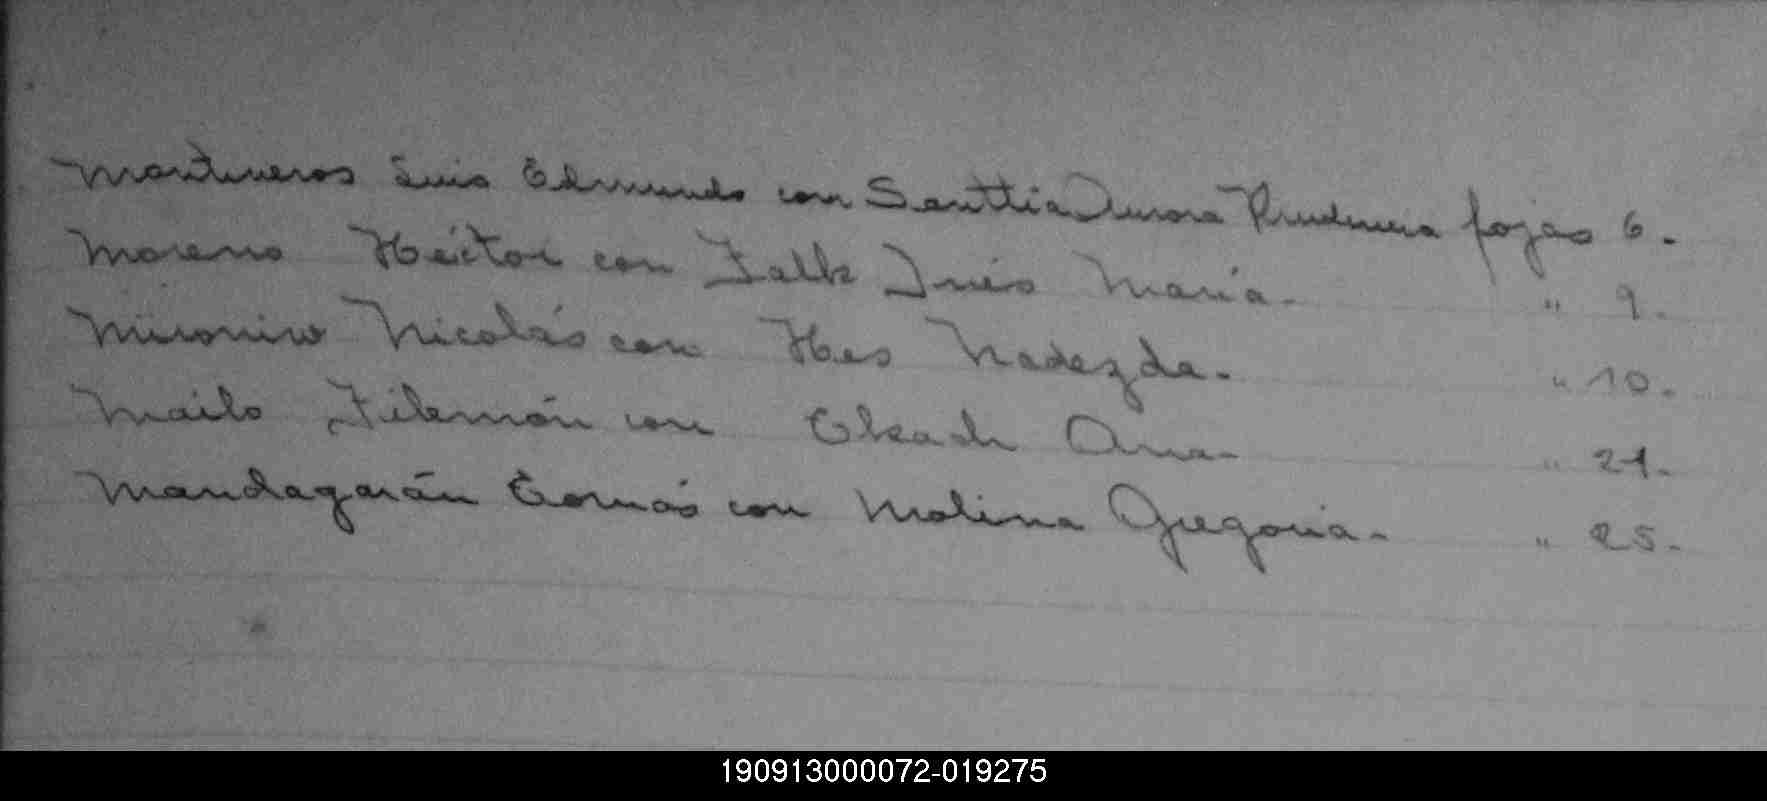 Luis Edmundo con Aurora Prudencia fojas 6.
Moreno Héctor con Falk Inés María. " 9.
Nicolás con Hes Nadezda. " 10.
Mailo Filemón con Ana. " 21.
Mandagarán Tomás con Molina Gregoria. " 25.
190913000072-019275